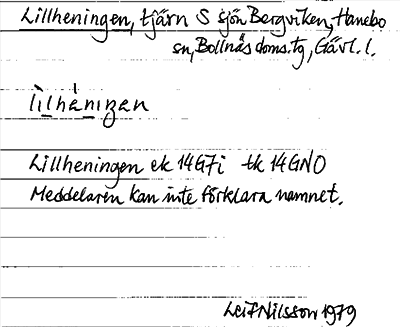 Lillheningen, tjärn S sjön Bergviken, Hanebo
sn, Bollnäs doms.tg, Gävl. l.
lìlhánıŋan
Lillheningen ek 14G7i tk 14GNO
Meddelaren kan inte förklara namnet.
Leif Nilsson 1979